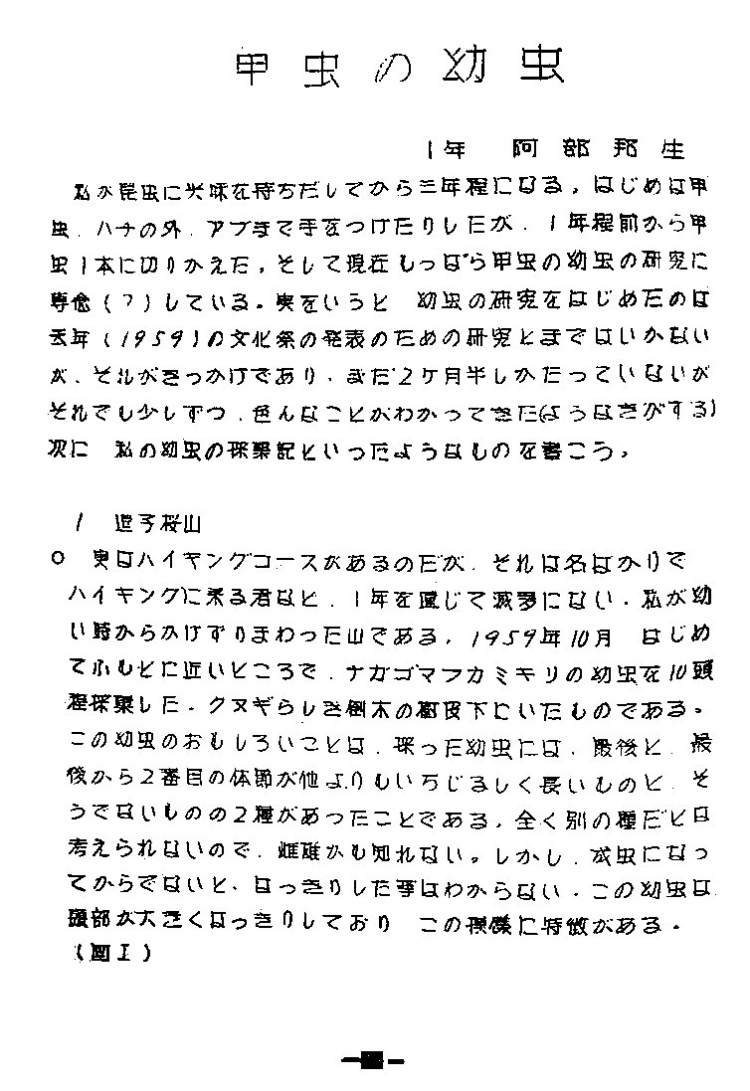 甲虫の幼虫
1年 阿部邦生
私が昆虫に興味を持ちだしてから三年程になる。はじめは甲
虫、ハチの外、アブまで手をつけたりしたが、1年程前から甲
虫1本に切りかえた。そして現在もっぱら甲虫の幼虫の研究に
専念(?)している。実をいうと 幼虫の研究をはじめたのは
去年(1959)の文化祭の発表のための研究とまではいかない
が、それがきっかけであり、まだ2ケ月半しかたっていないが
それでも少しずつ、色んなことがわかってきた(ようなきがする)
次に 私の幼虫の採集記といったようなものを書こう。
1 逆子桜山
○ 実はハイキングコースがあるのだが、それは名ばかりで
ハイキングに来る君など、1年を通じて滅多にない。私が幼
い時からかけずりまわった山である。1959年10月 はじめ
てふもとに近いところで、ナガゴマフカミキリの幼虫を10頭
程採集した。クヌギらしき倒木の樹皮下にいたものである。
この幼虫のおもしろいことは、採った幼虫には、最後と、最
後から2番目の体節が他よりもいちじるしく長いものと、そ
うでないものの2種があったことである。全く別の種だとは
考えられないので、雌雄かも知れない。しかし、成虫になっ
てからでないと、はっきりした事はわからない。この幼虫は
頭部が大きくはっきりしており この模様に特徴がある。
(図I)